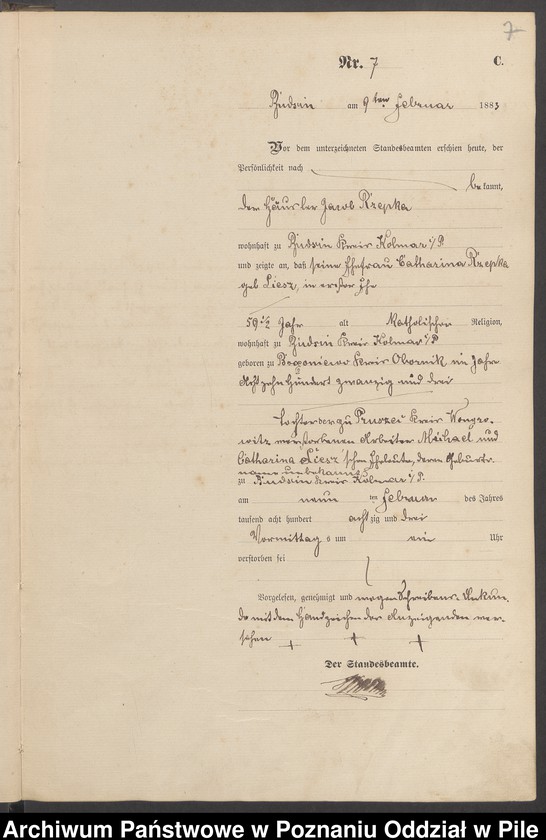 7
Nr. 7 C.
Budsin am 9ten Februar 1883
Vor dem unterzeichneten Standesbeamten erschien heute, der
Persönlichkeit nach
bekannt,
der Häusler Jacob Rzepka
wohnhaft zu Budsin Kreis Kolmar i/P.
und zeigte an, daß seine Ehefrau Catharina Rzepka
geb Liesz, in erster Ehe
59 1/2 Jahr alt Katholischer Religion,
wohnhaft zu Budsin Kreis Kolmar i/P
geboren zu Kreis Obornik im Jahre
Achtzehnhundert zwanzig und drei
Tochter der zu Pruszce Kreis Wongro-
witz verstorbenen Arbeiter Michael und
Catharina Liesz'schen Eheleute, deren Geburts-
name unbekannt
zu Budsin Kreis Kolmar i/P.
am neun ten Februar des Jahres
tausend acht hundert achtzig und drei
Vormittags um ein Uhr
verstorben sei
Vorgelesen, genehmigt und wegen Schreibens-Unkun-
de mit dem Handzeichen des Anzeigenden ver-
sehen + + +
Der Standesbeamte.
Archiwum Państwowe w Poznaniu Oddział w Pile